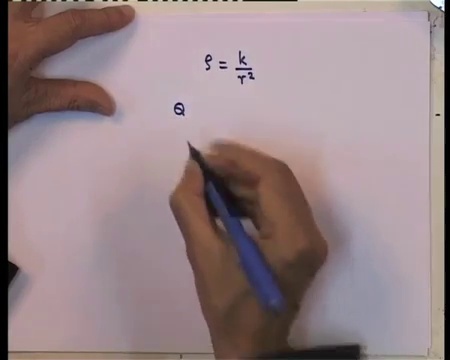 ρ = k/r²
Q